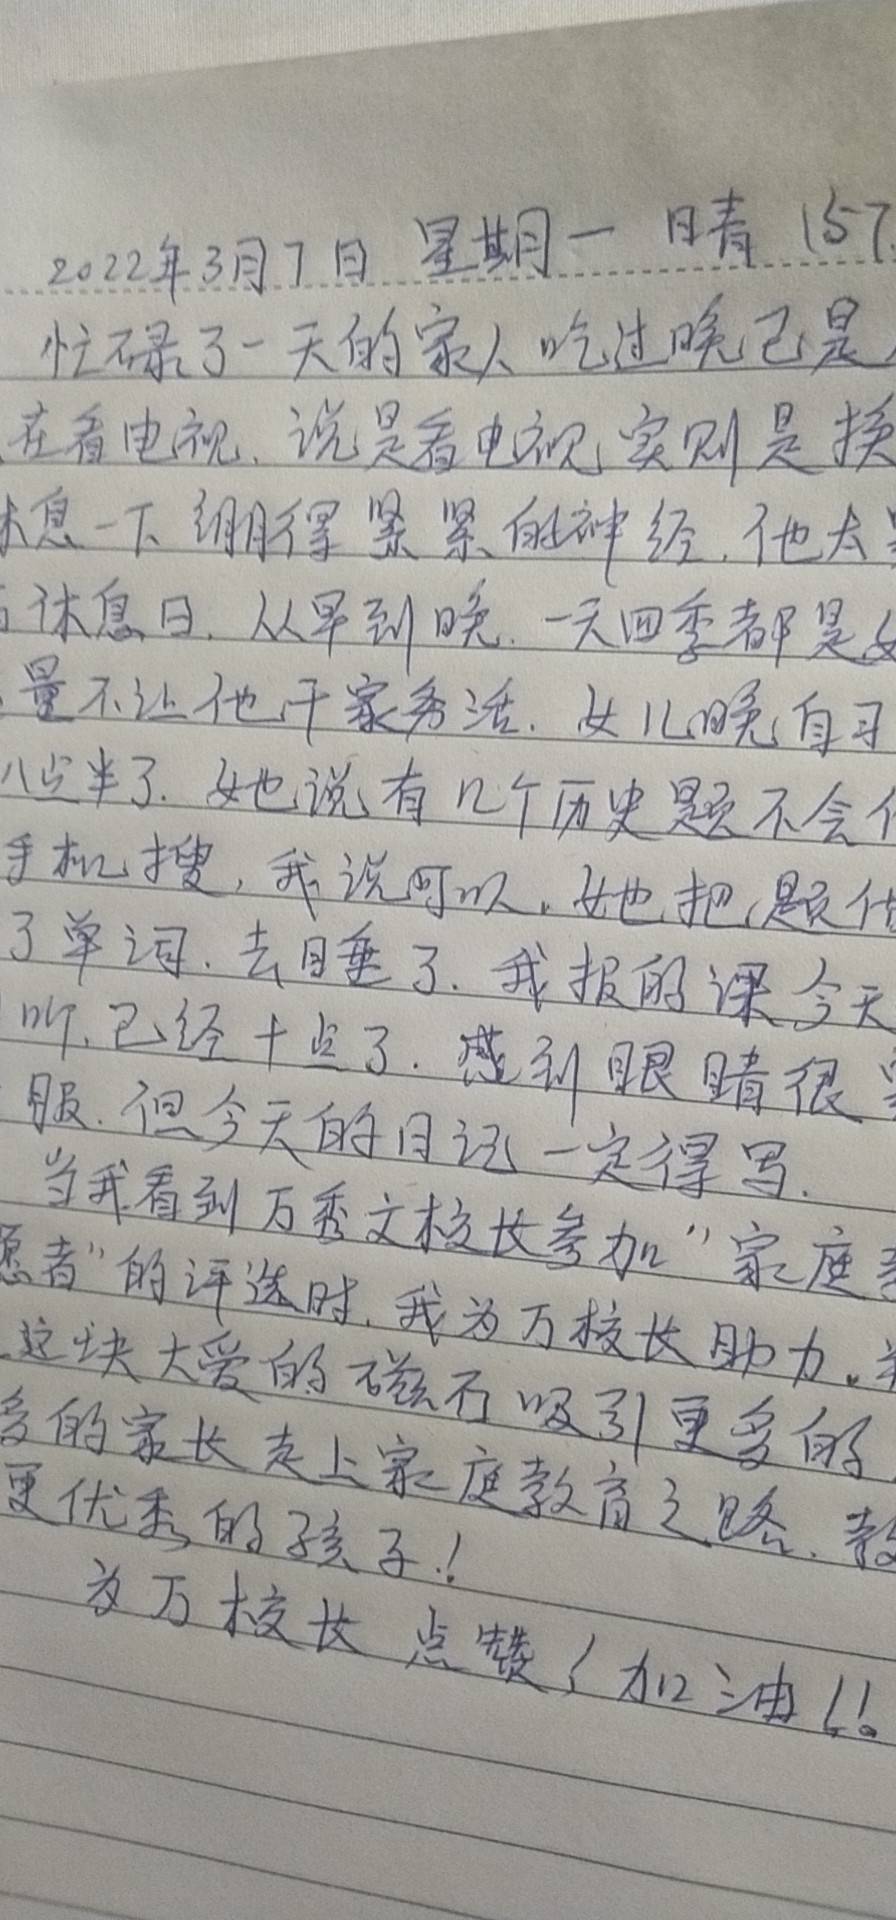 2022年3月7日 星期一 晴 (57
忙碌了一天的家人吃过晚已是
在看电视.说是看电视实则是换
休息一下绷得紧紧的神经.他太
休息日.从早到晚.一天四季都是
量不让他干家务活.女儿晚自习
八点半了.她说有几个历史题不会
手机搜,我说可以.她把题
了单词.去睡了.我报的课今天
听.已经十点了.感到眼睛很
服.但今天的日记一定得写.
当我看到万秀文校长参加"家庭
愿者"的评选时.我为万校长助力.
这块大爱的磁石吸引更多的
多的家长走上家庭教育之路.教
更优秀的孩子!
为万校长点赞!加油!!